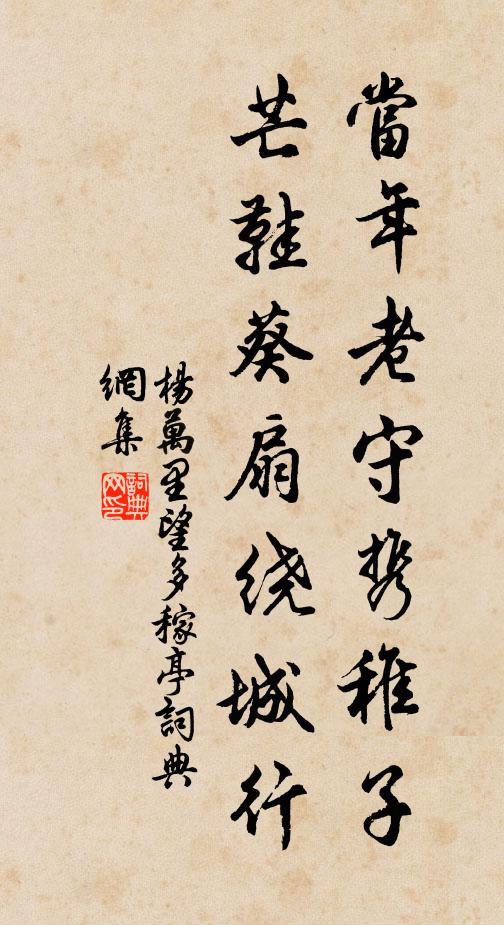 當年老守携稚子
芒鞋葵扇绕城行
楊萬里望多稼亭詞典
網集
詞典
网印